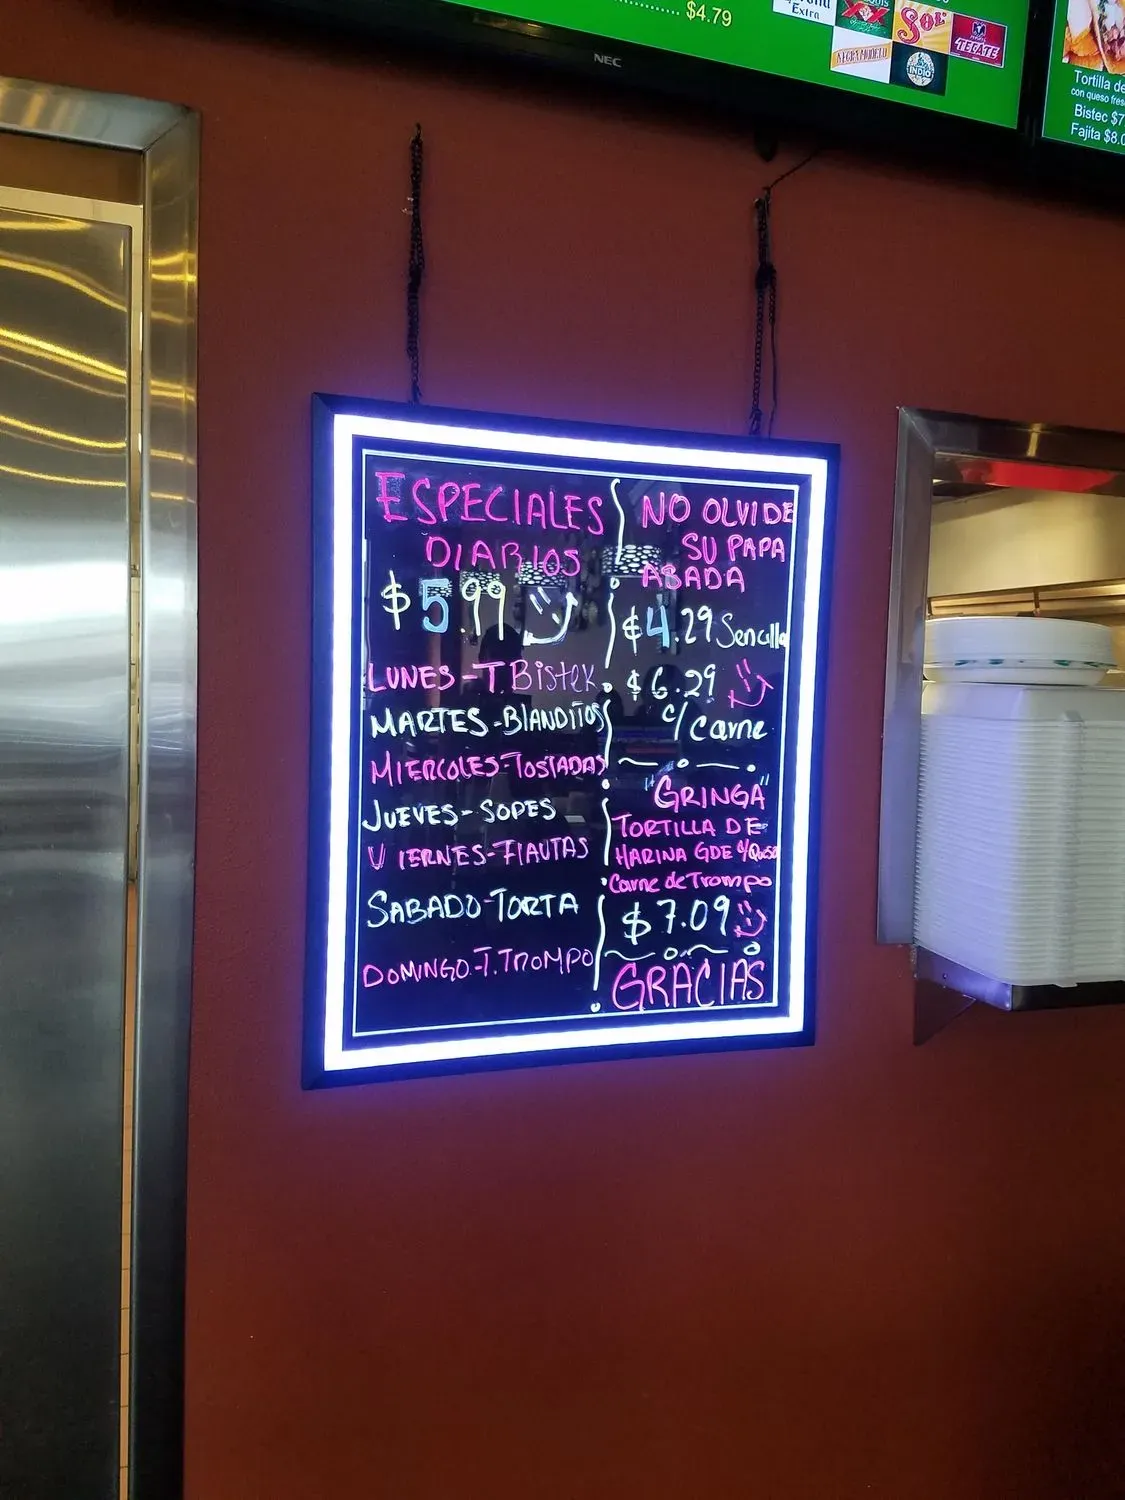 $4.79
Extra
XX
Sol
TECATE
NEGRA MODELO
INDIO
NEC
Tortilla de
con queso fres
Bistec $7
Fajita $8.0
ESPECIALES
DIARIOS
$5.99
LUNES-T.Bistek
MARTES-BlANDITOS
MIERCOLES-TOSTADAS
JUEVES-SOPES
VIERNES-FlAUTAS
SABADO-TORTA
DOMINGO-T.TROMPO
NO OLVIDE
SU PAPA
ASADA
$4.29 Sencilla
$6.29
c/Carne
"GRINGA"
TORTILLA DE
HARINA GDE c/Queso
Carne de Trompo
$7.09
GRACIAS